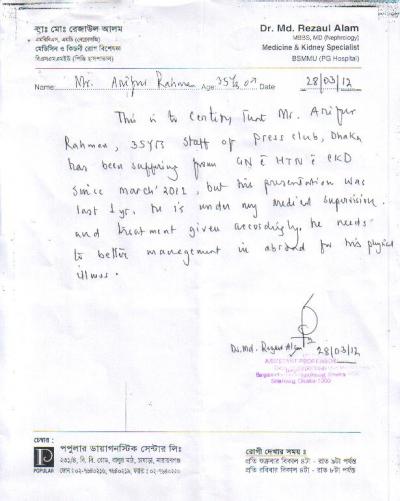 ডাঃ মোঃ রেজাউল আলম
Dr. Md. Rezaul Alam
এমবিবিএস, এমডি (নেফ্রোলজি)
MBBS, MD (Nephrology)
মেডিসিন ও কিডনী রোগ বিশেষজ্ঞ
Medicine & Kidney Specialist
বিএসএমএমইউ (পিজি হাসপাতাল)
BSMMU (PG Hospital)
Name: Mr. Arifur Rahman Age: 35 Date 28/03/12
This is to certify that Mr. Arifur
Rahman, 35yrs staff of press club, Dhaka
has been suffering from GN c̄ HTN c̄ CKD
since march' 2011, but his presentation was
last 1yr. he is under my medical supervision.
and treatment given accordingly. he needs
to better management in abroad for his physical
illness.
Dr. Md. Rezaul Alam 28/03/12
ASSISTANT PROFESSOR
Shahbag, Dhaka-1000
চেম্বার :
পপুলার ডায়াগনস্টিক সেন্টার লিঃ
POPULAR
রোগী দেখার সময় :
প্রতি শুক্রবার বিকাল ৪টা - রাত ৯টা পর্যন্ত
প্রতি রবিবার বিকাল ৪টা - রাত ৮টা পর্যন্ত